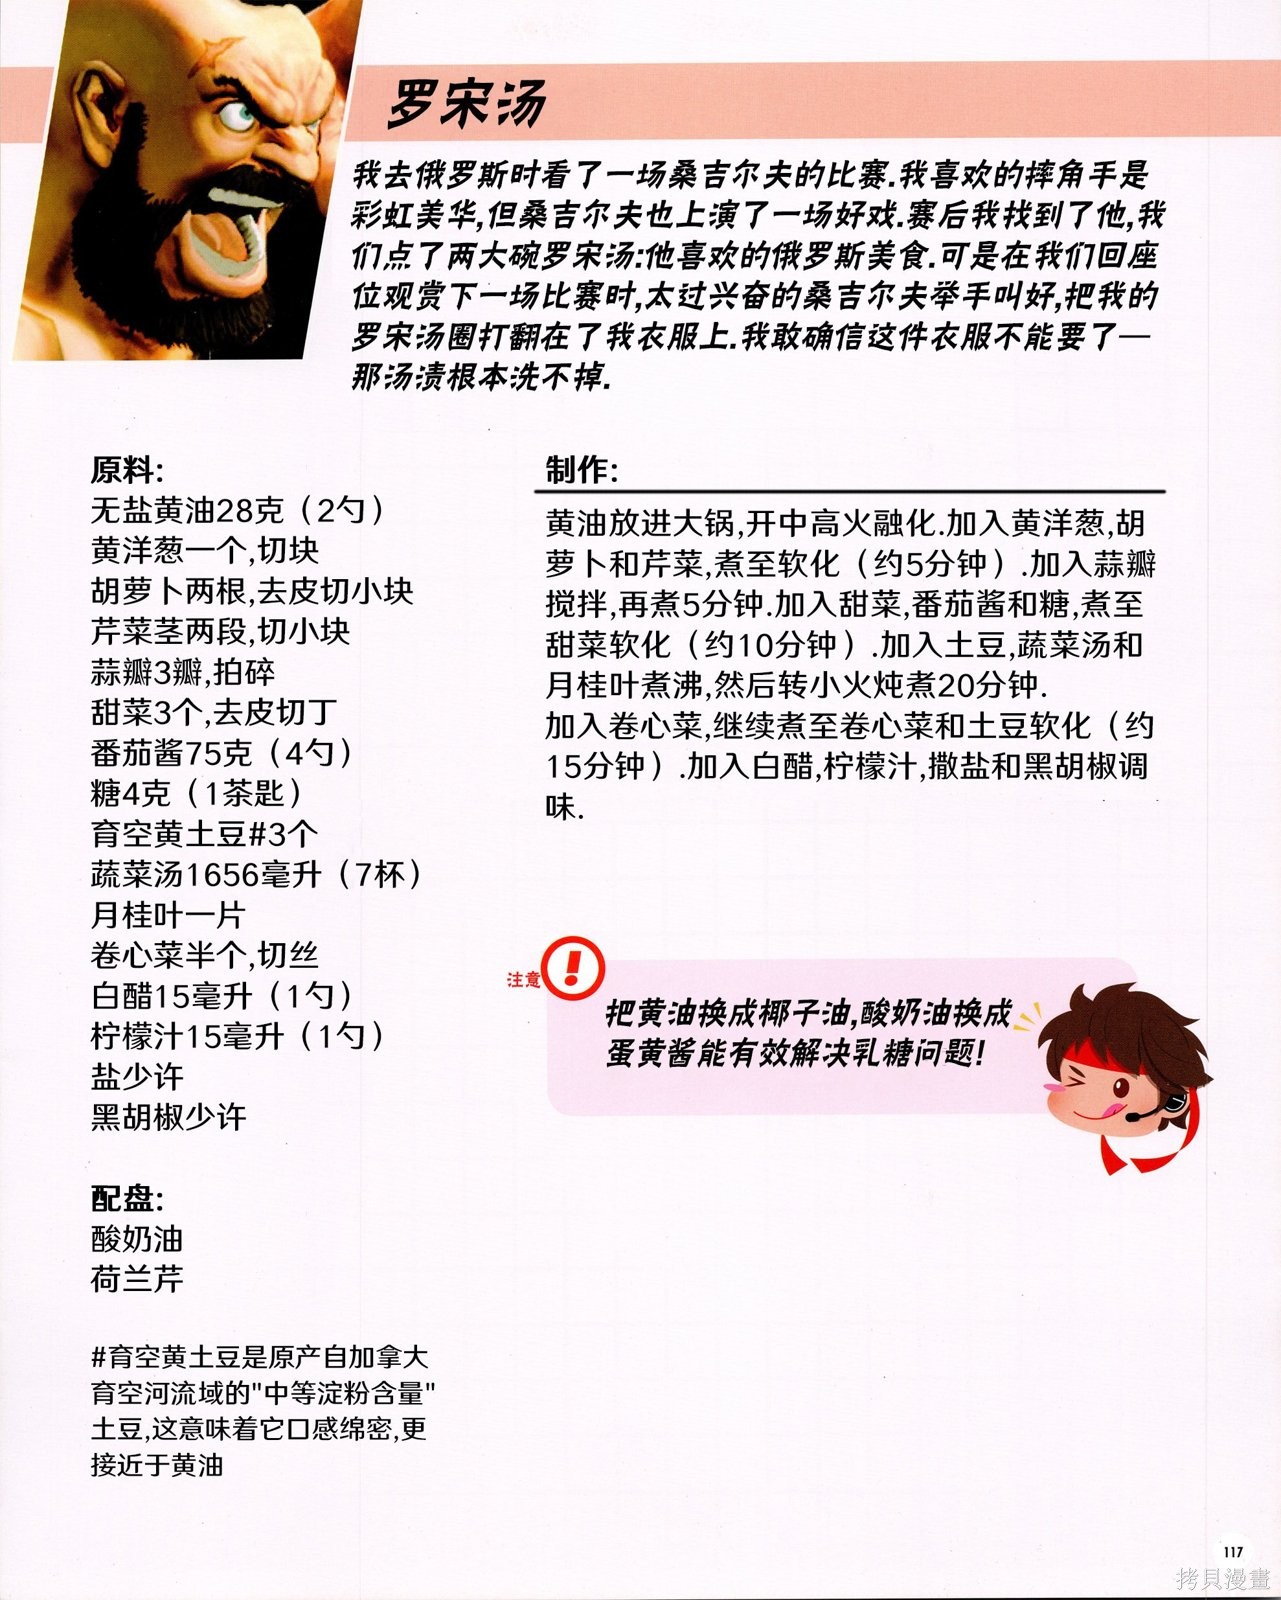 罗宋汤
我去俄罗斯时看了一场桑吉尔夫的比赛.我喜欢的摔角手是
彩虹美华,但桑吉尔夫也上演了一场好戏.赛后我找到了他,我
们点了两大碗罗宋汤:他喜欢的俄罗斯美食.可是在我们回座
位观赏下一场比赛时,太过兴奋的桑吉尔夫举手叫好,把我的
罗宋汤圈打翻在了我衣服上.我敢确信这件衣服不能要了—
那汤渍根本洗不掉.
原料:
无盐黄油28克（2勺）
黄洋葱一个,切块
胡萝卜两根,去皮切小块
芹菜茎两段,切小块
蒜瓣3瓣,拍碎
甜菜3个,去皮切丁
番茄酱75克（4勺）
糖4克（1茶匙）
育空黄土豆#3个
蔬菜汤1656毫升（7杯）
月桂叶一片
卷心菜半个,切丝
白醋15毫升（1勺）
柠檬汁15毫升（1勺）
盐少许
黑胡椒少许
配盘:
酸奶油
荷兰芹
#育空黄土豆是原产自加拿大
育空河流域的"中等淀粉含量"
土豆,这意味着它口感绵密,更
接近于黄油
制作:
黄油放进大锅,开中高火融化.加入黄洋葱,胡
萝卜和芹菜,煮至软化（约5分钟）.加入蒜瓣
搅拌,再煮5分钟.加入甜菜,番茄酱和糖,煮至
甜菜软化（约10分钟）.加入土豆,蔬菜汤和
月桂叶煮沸,然后转小火炖煮20分钟.
加入卷心菜,继续煮至卷心菜和土豆软化（约
15分钟）.加入白醋,柠檬汁,撒盐和黑胡椒调
味.
注意
把黄油换成椰子油,酸奶油换成
蛋黄酱能有效解决乳糖问题!
117
拷貝漫畫